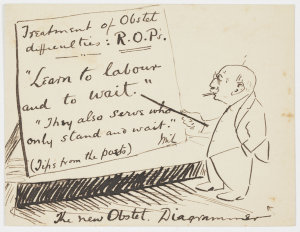 Treatment of Obstet
difficulties: R.O.Ps.
"Learn to labour
and to wait."
"They also serve who
only stand and wait."
Mil
(Tips from the poets)
The new Obstet. Diagrammer